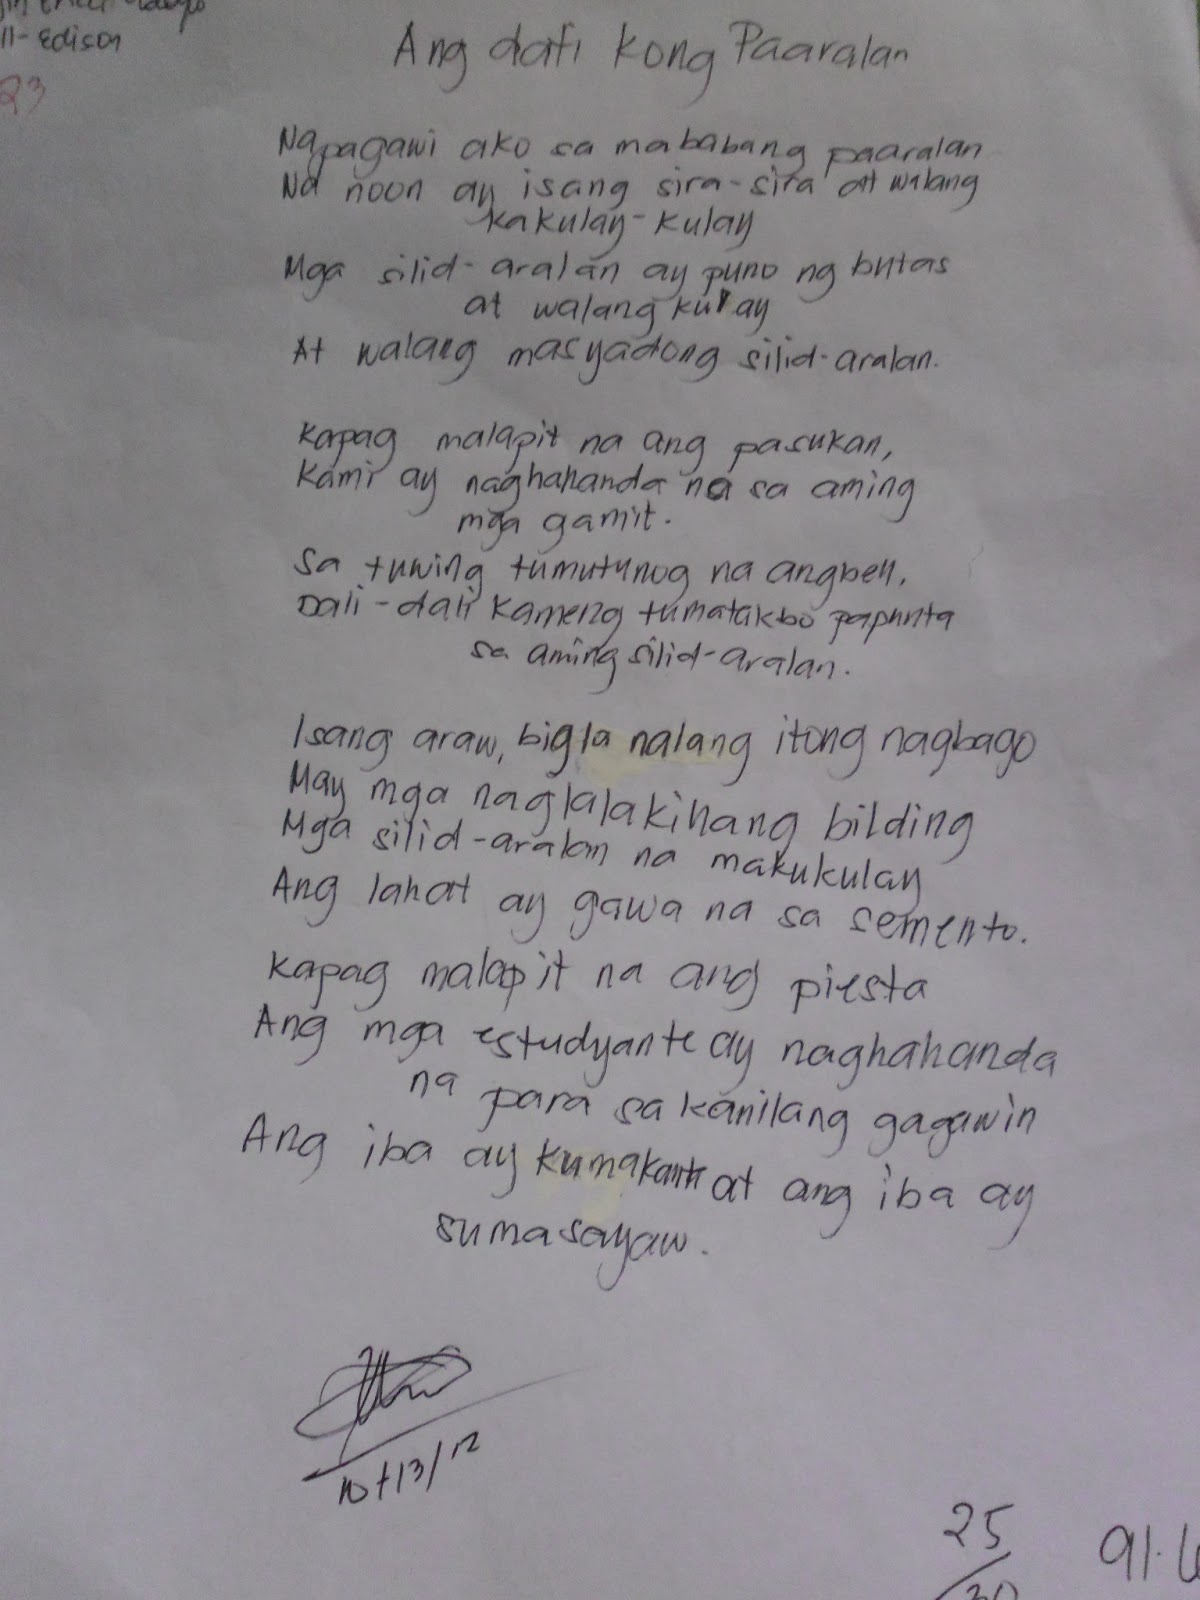 11-Edison
23
Ang dati kong Paaralan
Napagawi ako sa mababang paaralan
Na noon ay isang sira-sira at walang
kakulay-kulay
Mga silid-aralan ay puno ng butas
at walang kulay
At walang masyadong silid-aralan.
Kapag malapit na ang pasukan,
Kami ay naghahanda na sa aming
mga gamit.
Sa tuwing tumutunog na angbell,
Dali-dali kameng tumatakbo papunta
sa aming silid-aralan.
Isang araw, bigla nalang itong nagbago
May mga naglalakihang bilding
Mga silid-aralan na makukulay
Ang lahat ay gawa na sa semento.
Kapag malapit na ang piesta
Ang mga estudyante ay naghahanda
na para sa kanilang gagawin
Ang iba ay kumakanta at ang iba ay
sumasayaw.
10/13/12
25
30
91.6